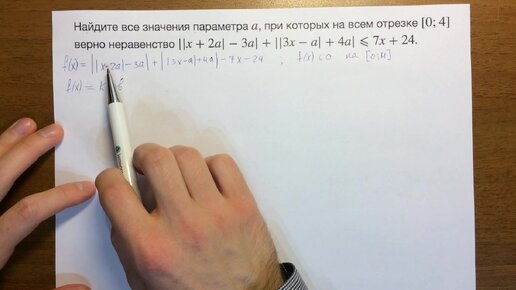 Найдите все значения параметра a, при которых на всем отрезке [0; 4]
верно неравенство ||x + 2a| − 3a| + ||3x − a| + 4a| ⩽ 7x + 24.
f(x) = ||x+2a|−3a| + ||3x−a|+4a| −7x −24 ; f(x) ≤ 0 на [0;4]
f(x) = k